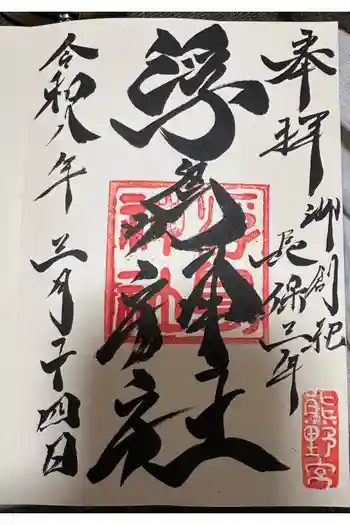 奉拝
御創祀
長保三年
浮島神社
令和八年 三月二十四日
浮島神社
熊野宮